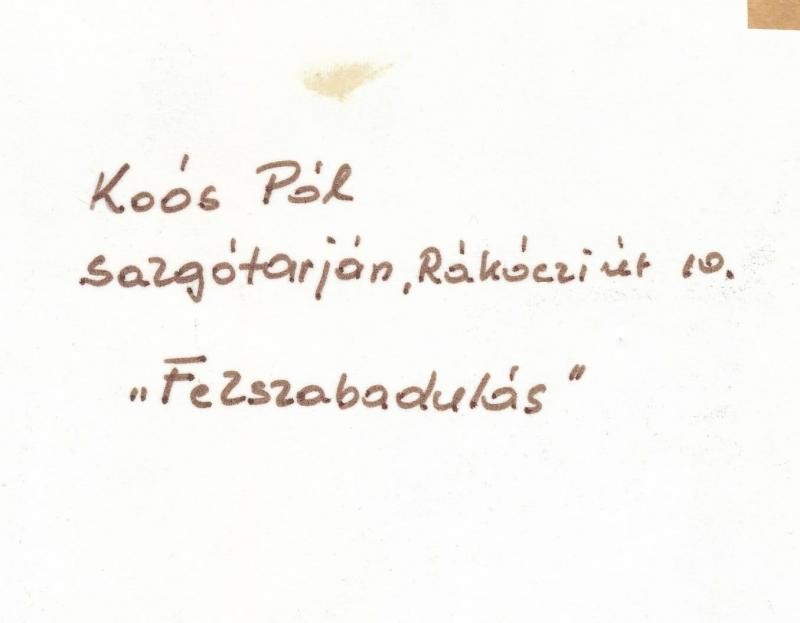 Koós Pál
Salgótarján, Rákóczi út 10.
„Felszabadulás"